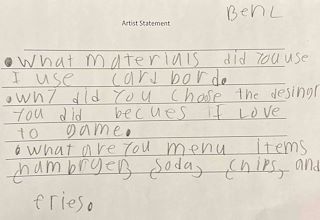 Ben L
Artist Statement
• What materials did you use
I use card bord.
• Wh? did you choose the desingr
you did becues if Love
to game.
• what are you menu items
hambryer, soda, chips, and
fries.